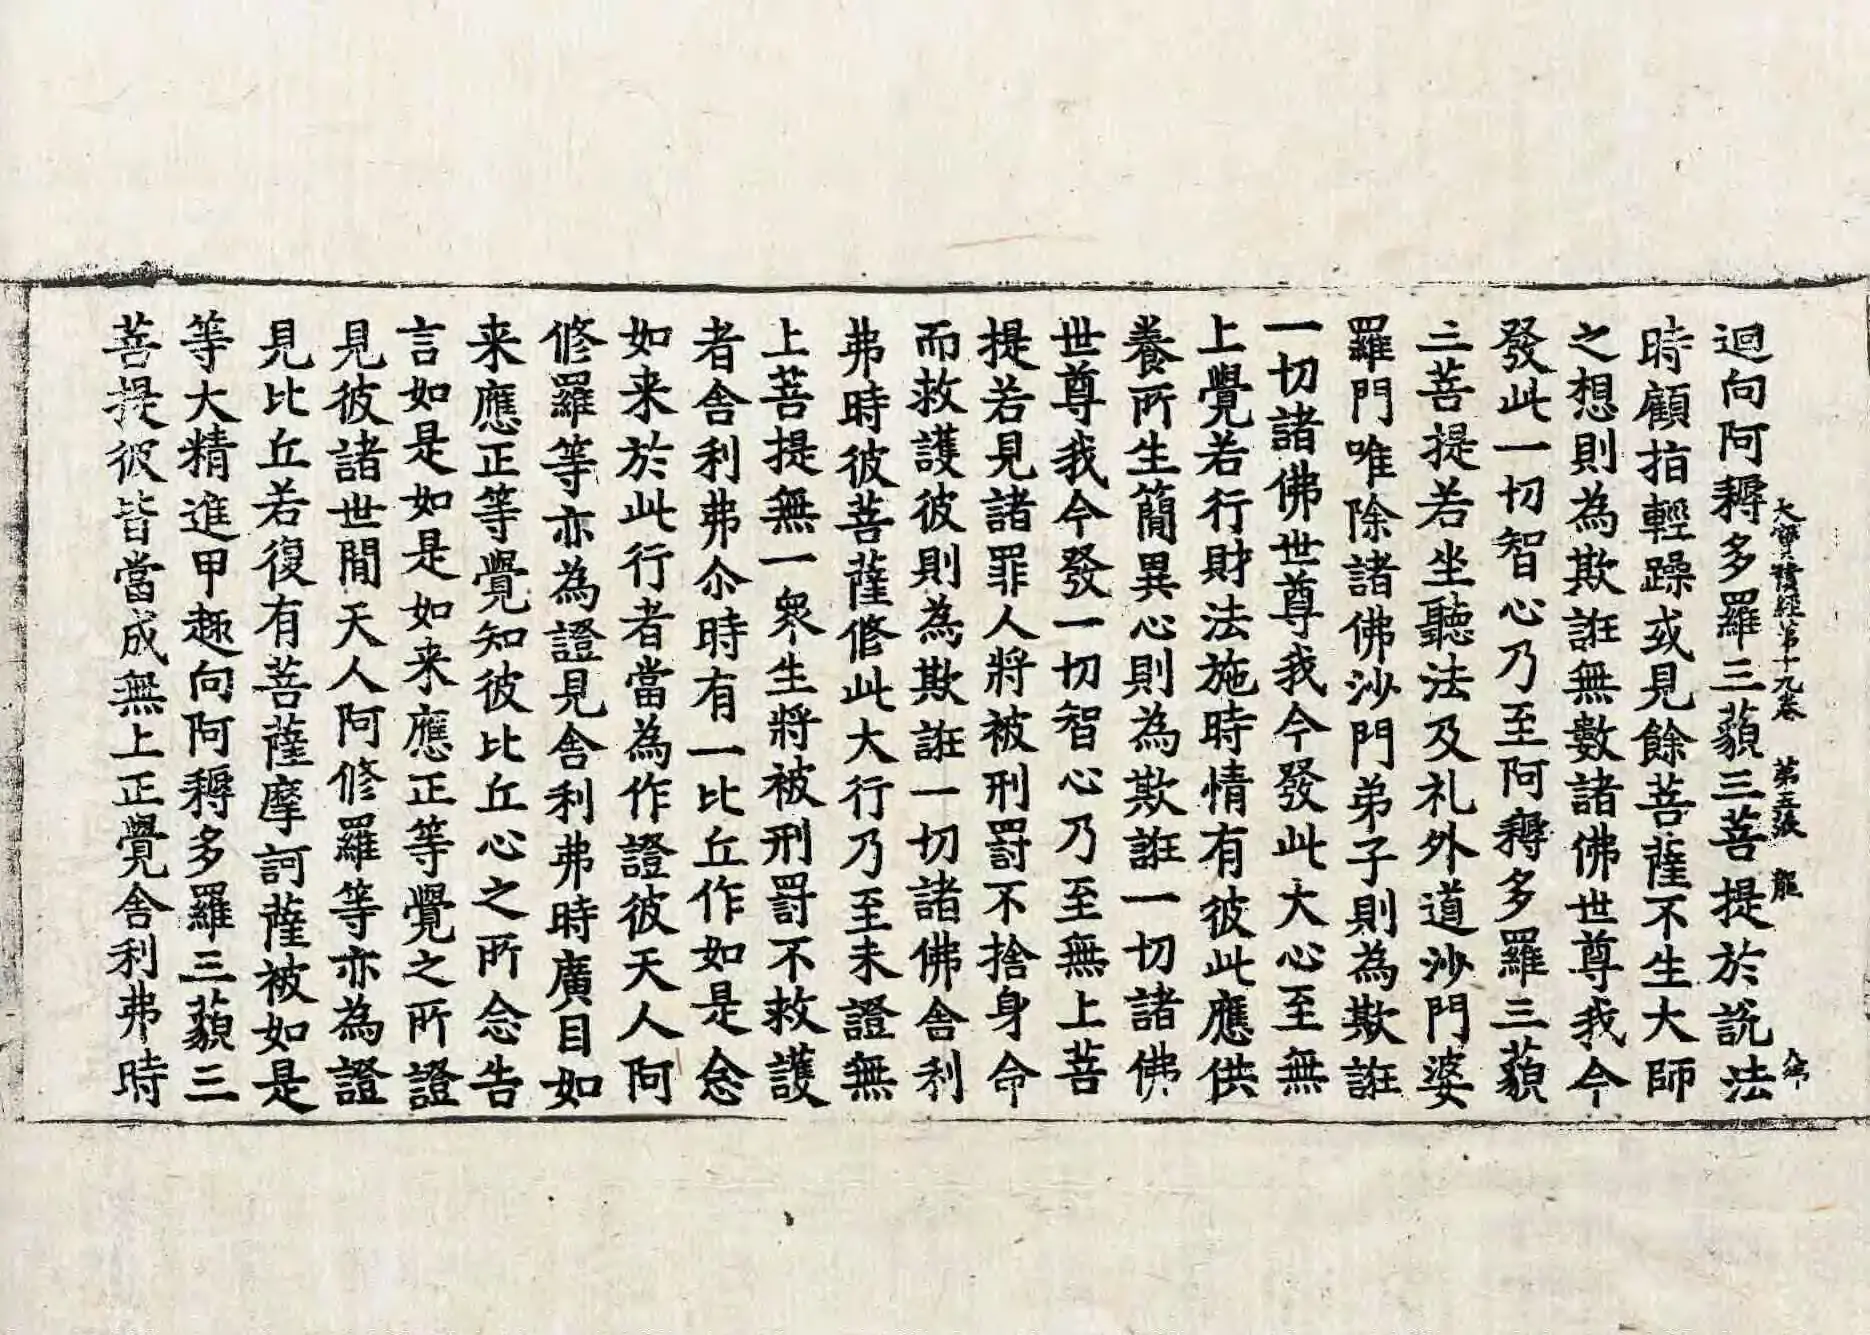 大寶積經第十九卷 第五張 龍
迴向阿耨多羅三藐三菩提於說法
時顧指輕躁或見餘菩薩不生大師
之想則為欺誑無數諸佛世尊我今
發此一切智心乃至阿耨多羅三藐
三菩提若坐聽法及礼外道沙門婆
羅門唯除諸佛沙門弟子則為欺誑
一切諸佛世尊我今發此大心至無
上覺若行財法施時情有彼此應供
養所生簡異心則為欺誑一切諸佛
世尊我今發一切智心乃至無上菩
提若見諸罪人將被刑罰不捨身命
而救護彼則為欺誑一切諸佛舍利
弗時彼菩薩修此大行乃至未證無
上菩提無一衆生將被刑罰不救護
者舍利弗尒時有一比丘作如是念
如来於此行者當為作證彼天人阿
修羅等亦為證見舍利弗時廣目如
来應正等覺知彼比丘心之所念告
言如是如是如来應正等覺之所證
見彼諸世間天人阿修羅等亦為證
見比丘若復有菩薩摩訶薩被如是
等大精進甲趣向阿耨多羅三藐三
菩提彼皆當成無上正覺舍利弗時